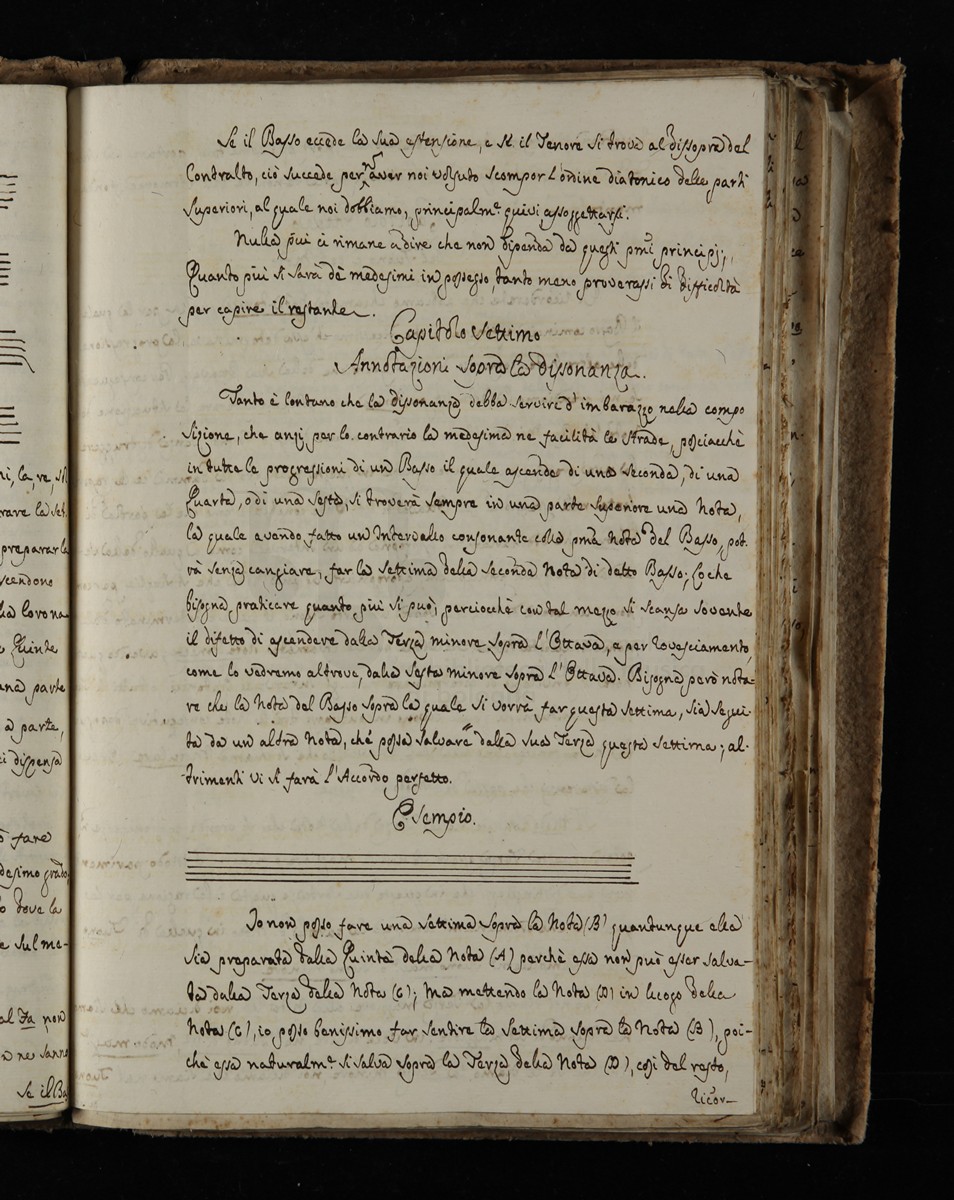 Se il Basso eccede la sua estensione, e se il Tenore si trova al dissopra del
Contralto, ciò succede per aver noi voluto scompor l'ordine diatonico delle parti
superiori, al quale noi dobbiamo, principalm.e quivi assoggettarsi.
Nulla più ci rimane a dire che non dipenda da questi pmi principj;
Quanto più si sarà dè medesimi in possesso, tanto meno proverassi di difficoltà
per capire il restante.
Capitolo Settimo
Annotazioni sopra la Dissonanza.
Tanto è lontano che la dissonanza debba servire d'imbarazzo nella compo
sizione, che anzi per lo contrario la medesima ne facilità le strade, posciacchè
in tutte le progressioni di un Basso il quale ascende di una seconda, di una
Quarta, o di una sesta, si troverà sempre in una parte superiore una Nota,
la quale avendo fatto un Intervallo consonante colla pma Nota del Basso, pot.
rà senza cangiare, far la settima della seconda Nota di detto Basso; Loche
bisogna praticare quanto più si può, perciocchè con tal mezzo si scansa sovente
il difetto di ascendere dalla Terza minore sopra l'Ottava, e per rovesciamento,
come lo vedremo altrove, dalla sesta minore sopra l'Ottava. Bisogna però nota=
re che la Nota del Basso sopra la quale si vorrà far questa settima, sia segui.
ta da un altra Nota, che possa salvare dalla sua Terza questa settima; al.
trimenti vi si farà l'Accordo perfetto.
Esempio.
Io non posso fare una settima sopra la Nota (B) quantunque ella
sia preparata dalla Quinta della Nota (A) perchè essa non può esser salva-
ta dalla Terza della Nota (C); Ma mettendo la Nota (D) in luogo della
Nota (C), io posso benissimo far sentire la settima sopra la Nota (B), poi-
chè essa naturalm.e si salva sopra la Terza della Nota (D), così del resto,
Ricor-